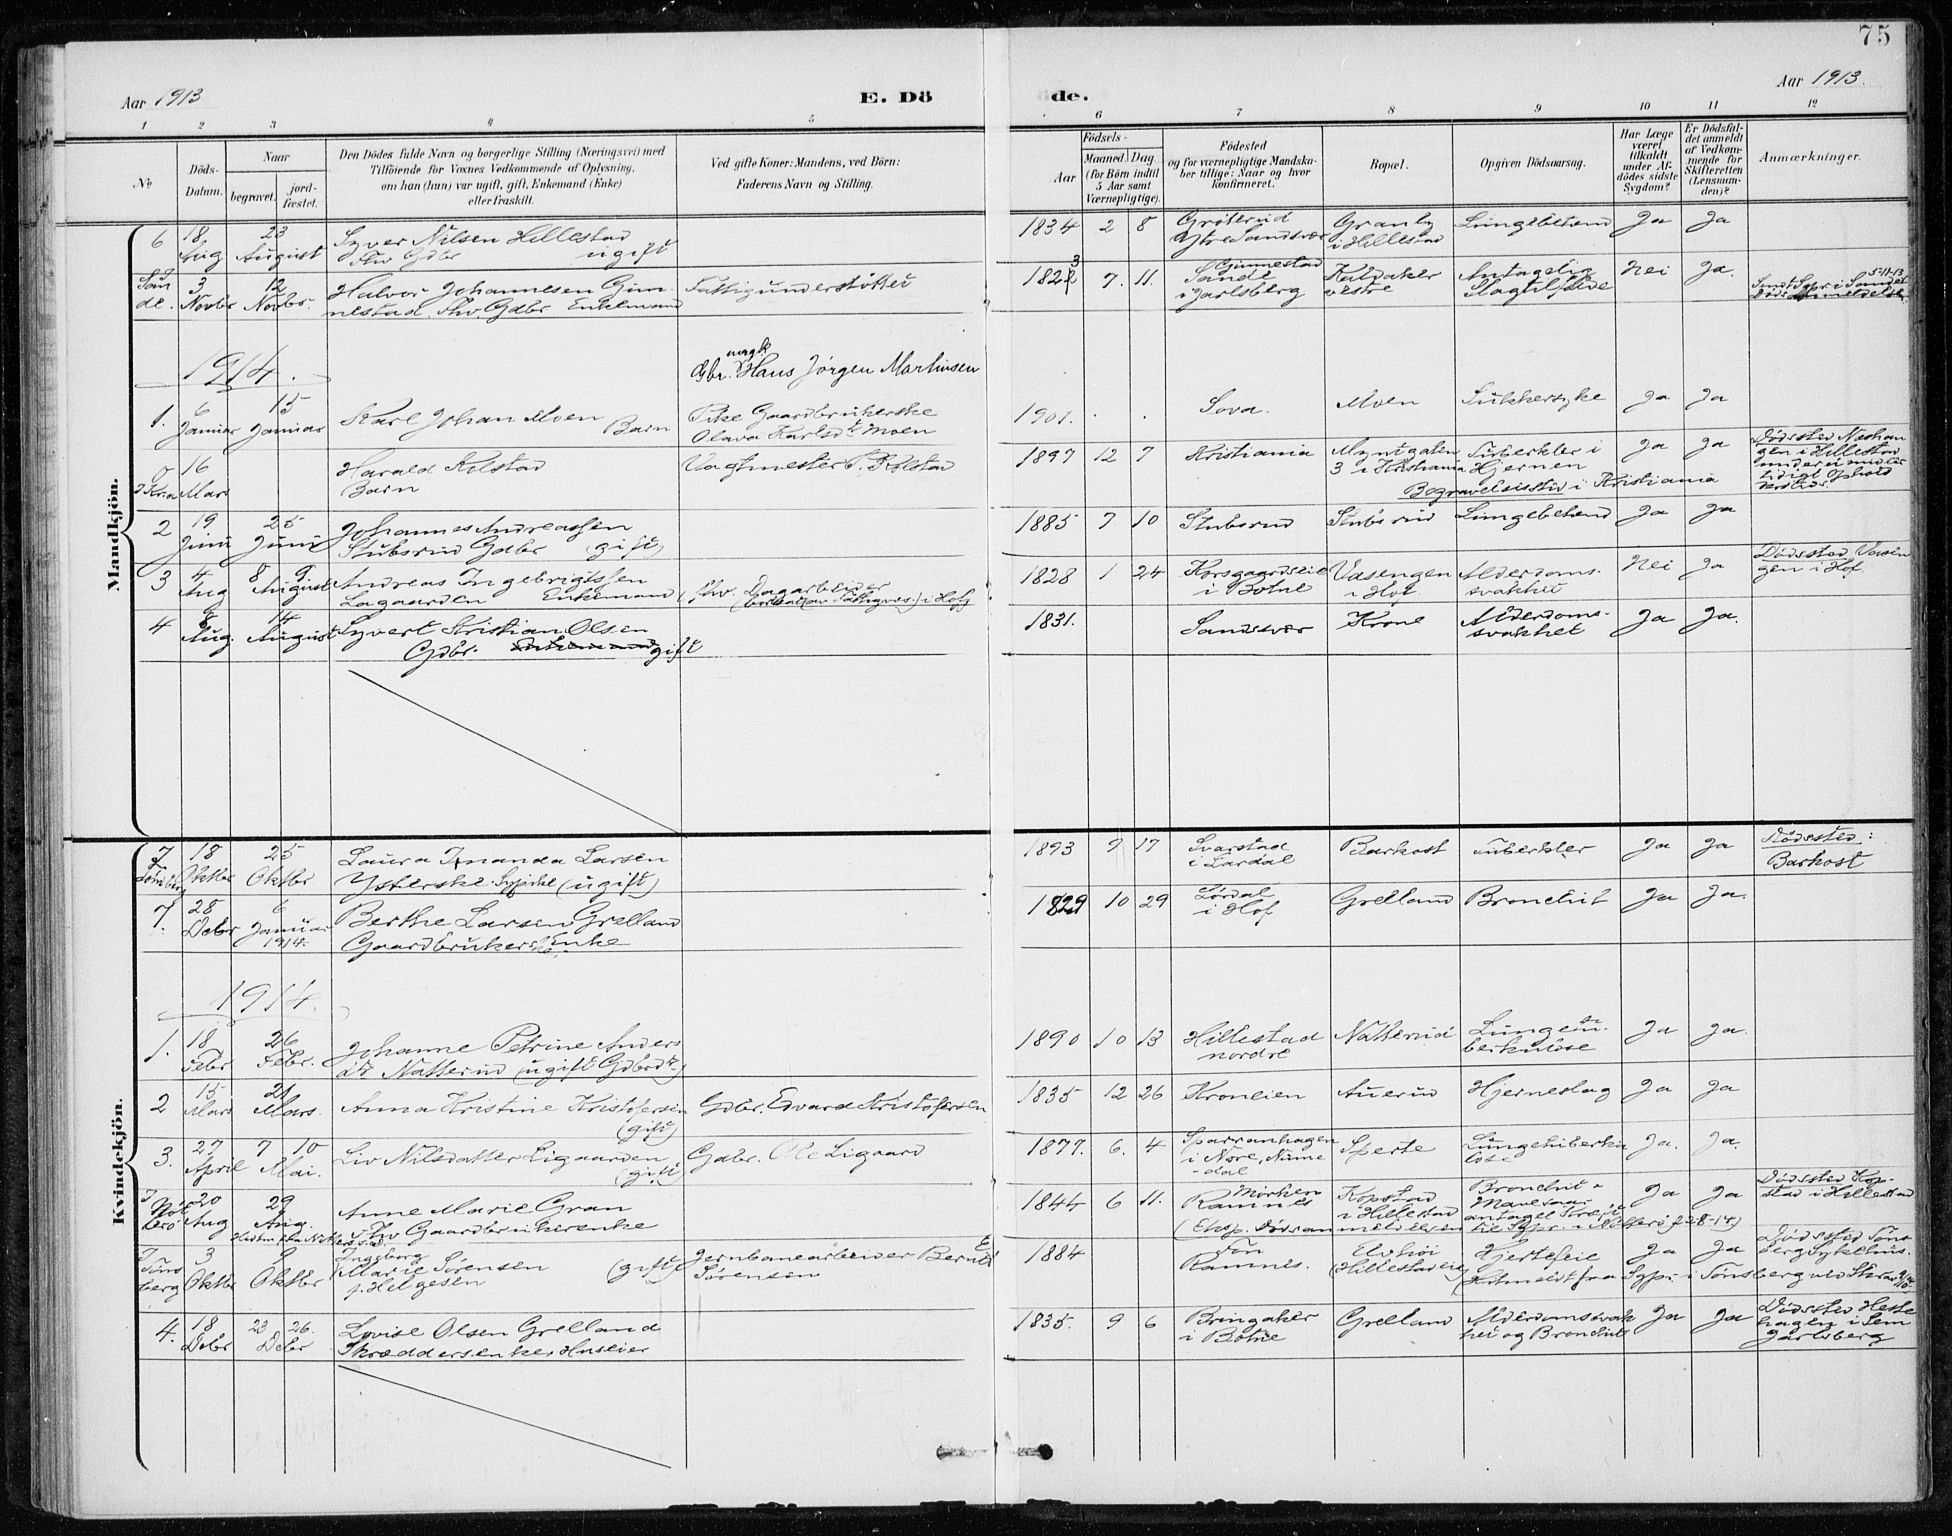 75
Aar 1913
E. Dö
de.
Aar 1913.
1 2 3 4 5 6 7 8 9 10 11 12
No
Döds-Datum.
Naar
begravet.
jord-fæstet.
Den Dödes fulde Navn og borgerlige Stilling (Næringsvei) med
Tilföiende for Voxnes Vedkommende af Oplysning,
om han (hun) var ugift, gift, Enkemand (Enke)
eller fraskilt.
Ved gifte Koner: Mandens, ved Börn:
Faderens Navn og Stilling.
Födsels-
Aar
Maaned. Dag
(for Börn indtil
5 Aar samt
Værnepligtige).
Födested
og for værnepligtige Mandska-
ber tillige: Naar og hvor
konfirmeret.
Bopæl.
Opgiven Dödsaarsag.
Har Læge
været
tilkaldt
under Af-
dödes sidste
Sygdom?
Er Dödsfal-
det anmeldt
af Vedkom-
mende for
Skifteretten
(Lensman-
den)?
Anmærkninger.
Mandkjön.
6 18 Aug 23 August Syver Nilsen Hillestad Fhv Gdbr ugift 1834 2 8 Grøterud Ytre Sandsvær Granly i Hillestad Lungebetend Ja Ja
Sande. 3 Novbr 12 Novbr. Halvor Johannesen Gunnestad. Fhv. Gdbr Enkemand Fattigunderstøttet 1823 7. 11. Gunnestad Sande i Jarlsberg Kaldaker vestre Antagelig Slagtilfælde Nei Ja. 5-11-13
1914.
Gbr. Hans Jørgen Martinsen
1. 6 Januar 15 Januar Karl Johan Moen Barn Pike Gaardbrukerske Olava Karlsdtr Moen 1901. . . Sova. Moen Sukkersyke Ja Ja
16 Mars Harald Kolstad Barn Vagtmester P. Kolstad 1897 12 7 Kristiania Myntgaten 3 i Kristiania Tuberkler i Hjernen Ja Ja Dødssted i Hillestad under midlertidigt Ophold
Begravelsessted i Kristiania
2 19 Juni 25 Juni Johannes Andreassen Stubsrud Gdbr (gift) 1885 7 10 Stubsrud Stubsrud Lungebetend Ja Ja
3 4 Aug 8 9 August Andreas Ingebrigtsen Lagaarden Enkemand (Fhv. Dagarbeider i Hof) 1828 1 24 Korsgaardseie i Botne Vasengen i Hof Alderdoms-svakhet Nei Ja Dødssted Vasengen i Hof
4 8 Aug. 14 August Syvert Kristian Olsen Gdbr. gift 1831. Sandsvær Krone Alderdoms-svakhet Ja Ja.
Kvindekjön.
Tønsberg 18 Oktbr 25 Oktbr Laura Amanda Larsen Sypike (ugift) 1893 9 17 Svarstad i Lardal Barkost Tuberkler Ja Ja Dødssted: Barkost
7. 28 Debr 6 Januar 1914. Berthe Larsen Grelland Gaardbrukerske Enke 1829 10 29 i Hof Grelland Bronchit Ja Ja.
1914.
1. 18 Febr 26 Febr. Johanne Petrine Anders dtr Natterud (ugift Gdbrdtr) 1890 10 13 Hillestad nordre Natterud Lungetuberkulose Ja Ja.
2 15 Mars 21 Mars. Anna Kristine Kristofersen (gift) Gdbr. Edvard Kristofersen 1835 12 26 Kroneien Auerud Hjerneslag Ja Ja
3. 27 April 7 10 Mai. Liv Nilsdatter Ligaarden (gift) Gdbr. Ole Ligaard 1877. 6. 4 Sparranhagen i Nore, Numedal Sperte Lungetuberkulose Ja. Ja.
I Nøtterø 20 Aug 29 Aug. Anne Marie Gran Fhv Gaardbrukerenke 1844 6 11. Mørken Ramnes Kopstad i Hillestad Bronchit Ja Ja Dødssted Kopstad i Hillestad
I Tønsberg 3 Oktbr 9 Oktbr Ingeborg Marie Sørensen f. Helgesen (gift) Jernbanearbeider Bernt E Sørensen 1884 Føn Ramnes. Elvhøi (Hillestadeie) Hjertefeil Ja Ja Dødssted Tønsberg sykehus.
4. 18 Debr 23 26. Debr Lovise Olsen Grelland Skræddersenke, Huseier 1835. 9 6 Bringaker i Botne Grelland Alderdomssvakhet og Bronchit Ja Ja Dødssted Hestehagen i Sem Jarlsberg